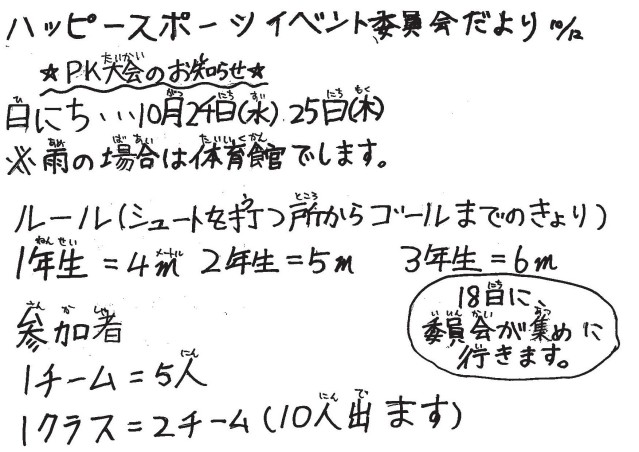 ハッピースポーツイベント委員会だより 10/12
☆PK大会のお知らせ☆
日にち…10月24日(水) 25日(木)
※雨の場合は体育館でします。
ルール(シュートを打つ所からゴールまでのきょり)
1年生=4m 2年生=5m 3年生=6m
18日に、
委員会が集めに
行きます。
参加者
1チーム=5人
1クラス=2チーム(10人出ます)